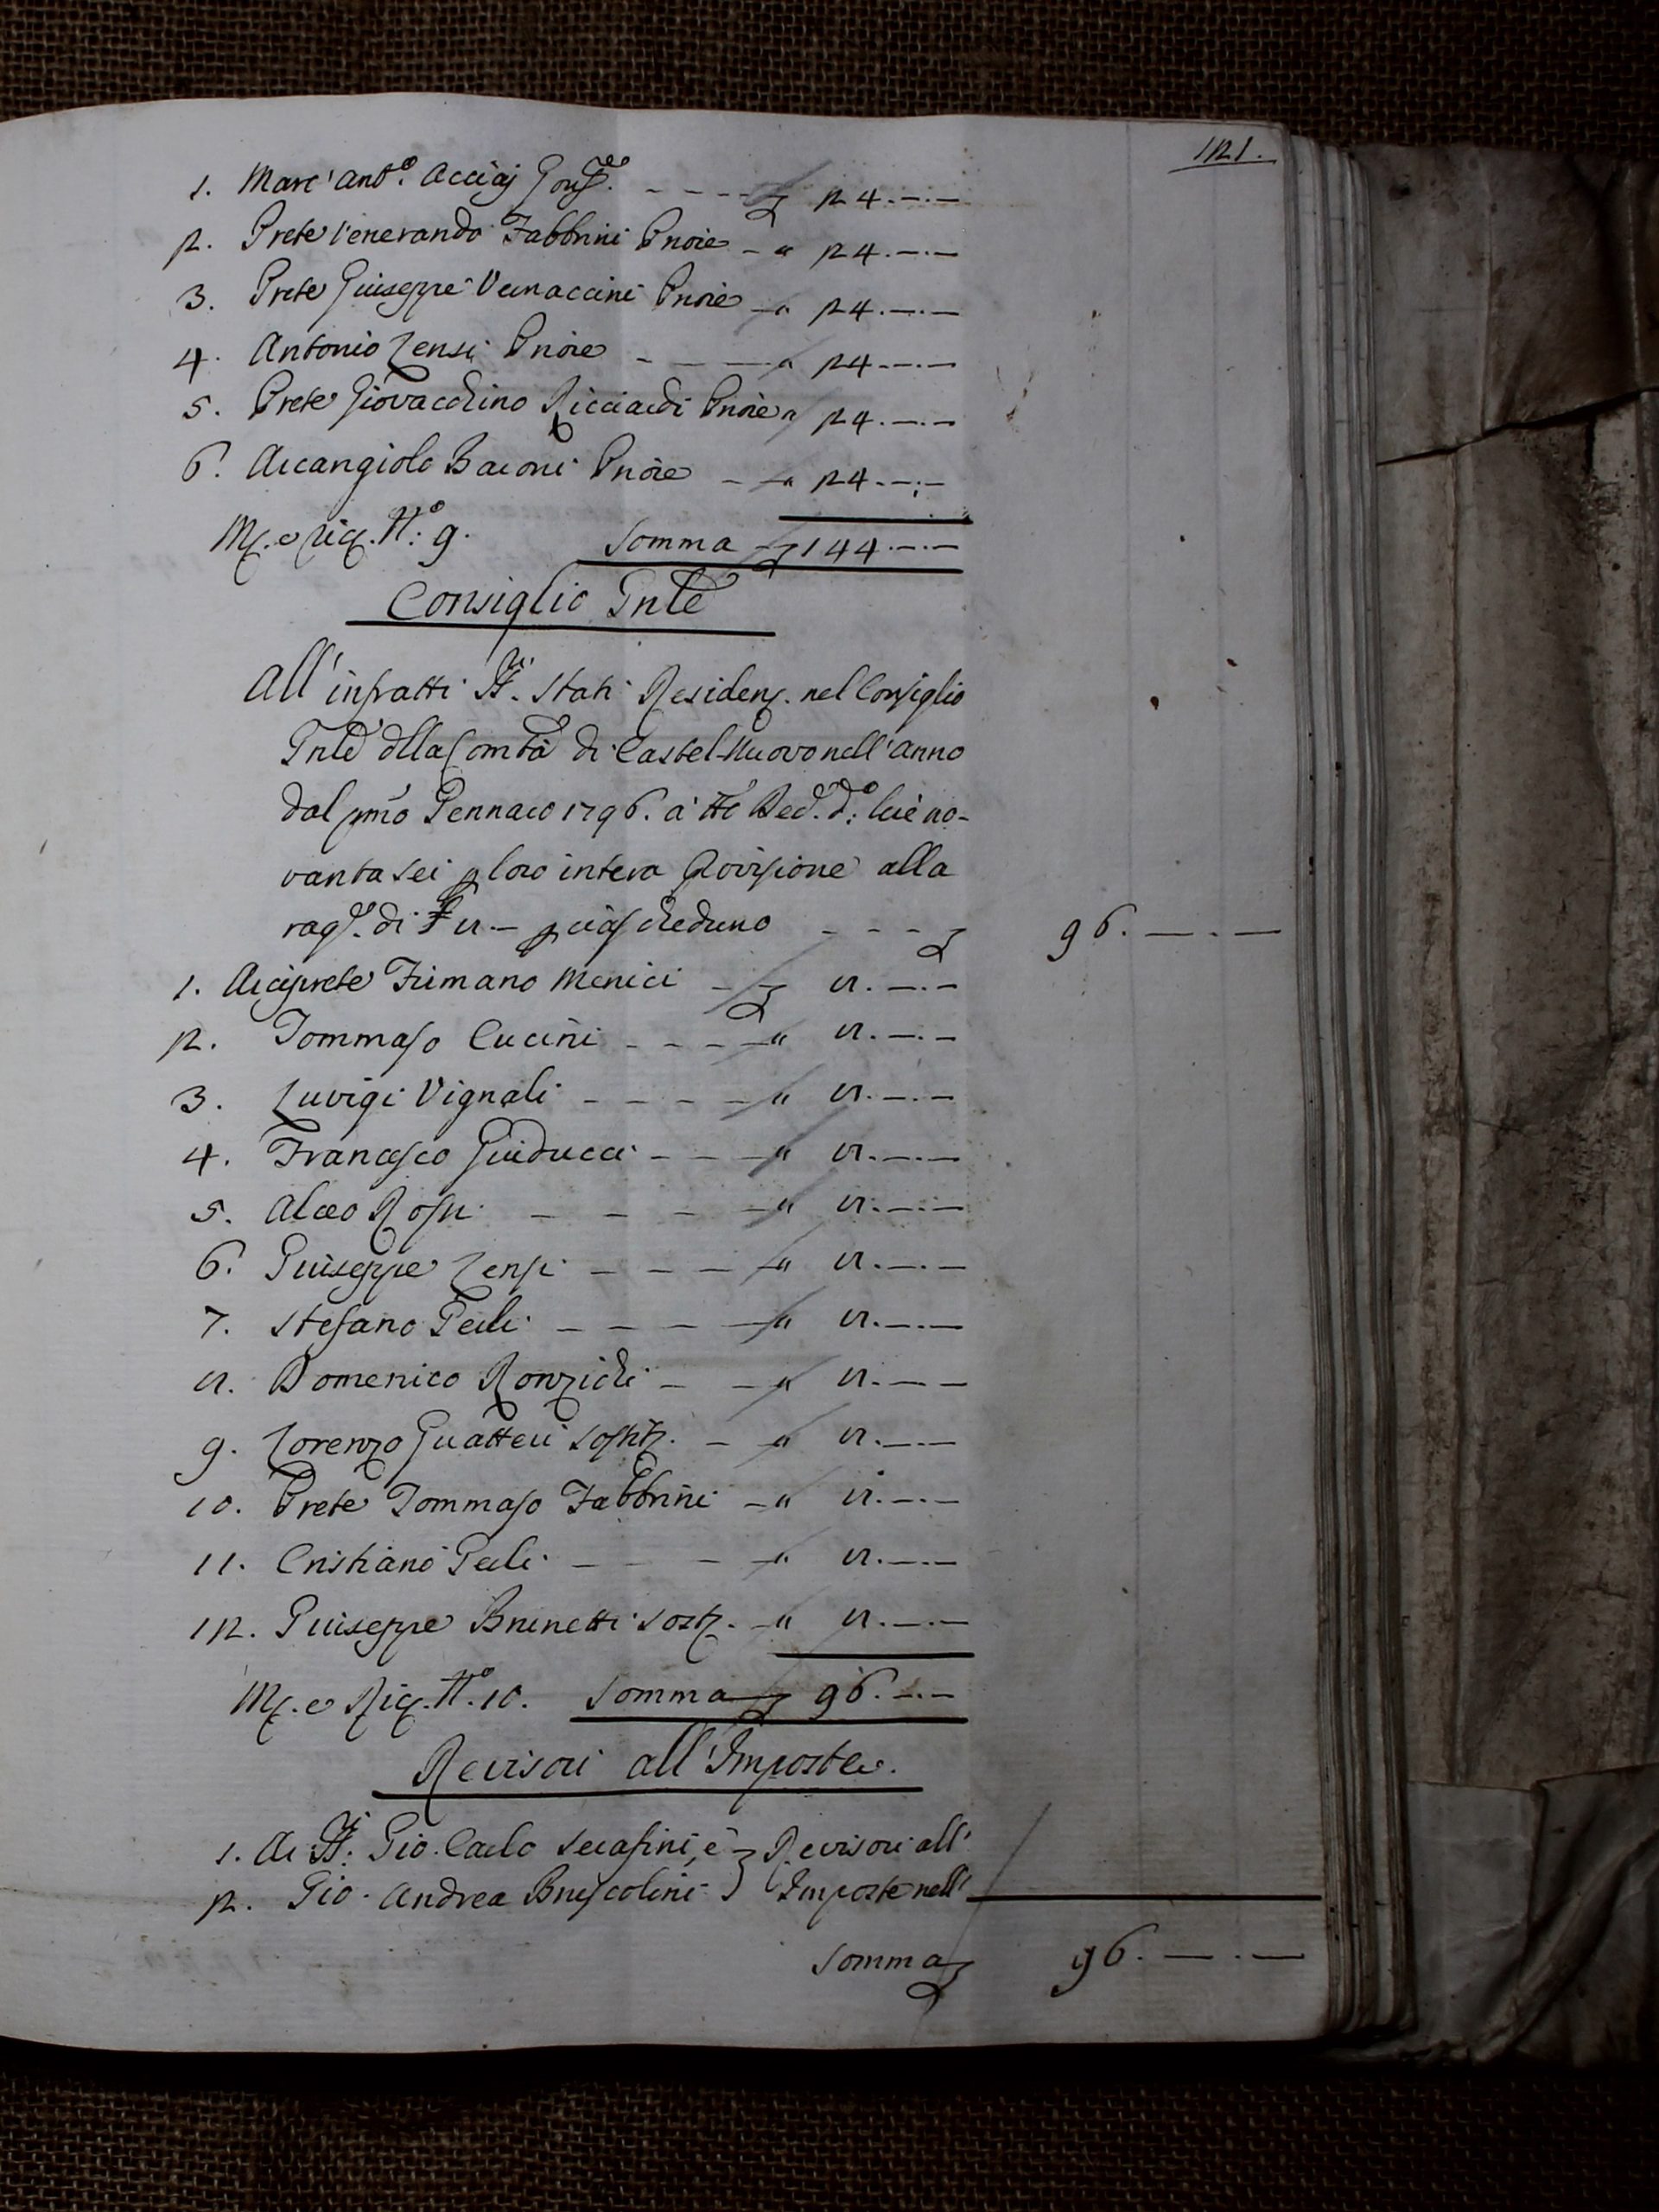 121.
1. Marc' Ant.º Acciaj Gonf.re - - - - £ 24.-.-
2. Prete Venerando Fabbrini Priore - " 24.-.-
3. Prete Giuseppe Vernaccini Priore - " 24.-.-
4. Antonio Lensi Priore - - - " 24.-.-
5. Prete Giovacchino Ricciardi Priore " 24.-.-
6. Arcangiolo Baroni Priore - - " 24.-.-
N.º 9. Somma £ 144.-.-
Consiglio Gnle
All' infratti SS.ri Stati Residenz. nel Consiglio
Gnle dlla Comtà di Castel-Nuovo nell' Anno
dal pmo Gennaro 1796. a tto Dec. d.º lire no-
vanta sei p loro intera Provisione alla
rag.e di £ 8.- p ciascheduno - - - - £ 96.-.-
1. Arciprete Firmano Menici - - £ 8.-.-
2. Tommaso Cucini - - - - " 8.-.-
3. Luvigi Vignali - - - - " 8.-.-
4. Francesco Guiducci - - - " 8.-.-
5. Alceo Rossi - - - - " 8.-.-
6. Giuseppe Lensi - - - - " 8.-.-
7. Stefano Perli - - - - " 8.-.-
8. Domenico Ronzichi - - " 8.-.-
9. Lorenzo Guatteri Sostit. - " 8.-.-
10. Prete Tommaso Fabbrini - " 8.-.-
11. Cristiano Perli - - - " 8.-.-
12. Giuseppe Brunetti Sost. - " 8.-.-
N.º 10. Somma £ 96.-.-
Revisori all' Imposte.
1. Ai SS.ri Gio. Carlo Serafini, e } Revisori all'
2. Gio. Andrea Bruscolini } Imposte nell'
Somma £ 96.-.-